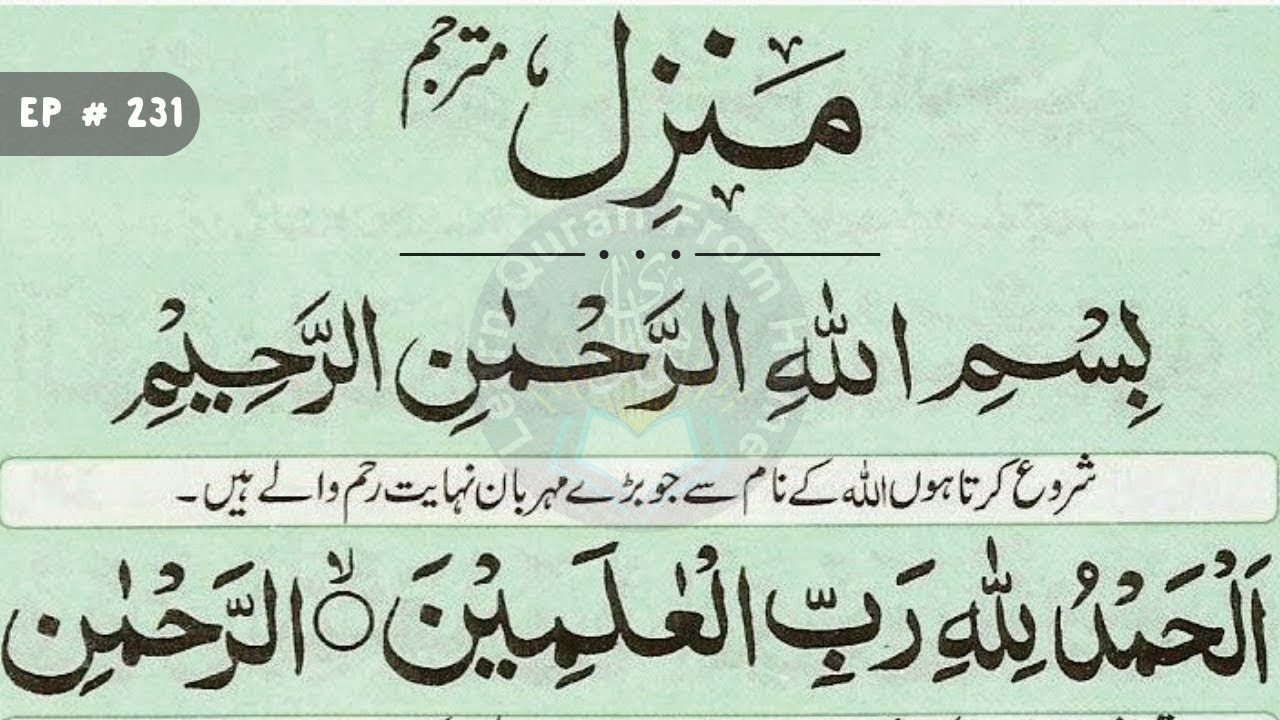 EP # 231
مَنزِل مترجم
بِسْمِ اللهِ الرَّحْمٰنِ الرَّحِيْمِ
شروع کرتا ہوں اللہ کے نام سے جو بڑے مہربان نہایت رحم والے ہیں۔
اَلْحَمْدُ لِلّٰهِ رَبِّ الْعٰلَمِيْنَ ۙ الرَّحْمٰنِ
Learn Quran From Home